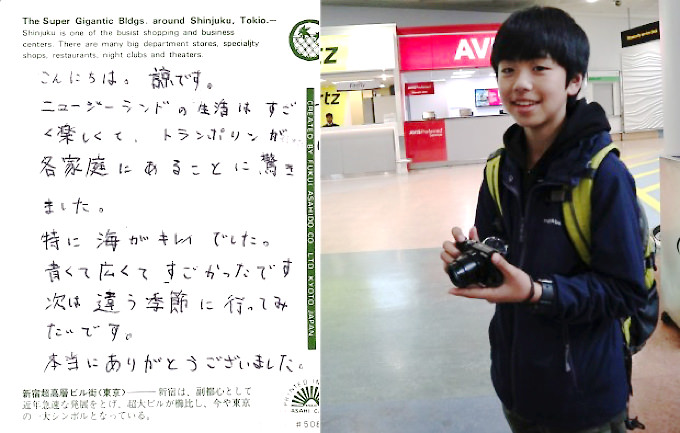 The Super Gigantic Bldgs. around Shinjuku, Tokio.—
Shinjuku is one of the busist shopping and business
centers. There are many big department stores, speciality
shops, restaurants, night clubs and theaters.
こんにちは。諒です。
ニュージーランドの生活はすご
く楽しくて、トランポリンが
各家庭にあることに驚き
ました。
特に海がキレイでした。
青くて広くてすごかったです
次は違う季節に行ってみ
たいです。
本当にありがとうございました。
新宿超高層ビル街(東京)———新宿は、副都心として
近年急速な発展をとげ、超大ビルが櫛比し、今や東京
の一大シンボルとなっている。
CREATED BY FUKUI ASAHIDO CO. LTD KYOTO JAPAN
PRINTED IN
ASAHI C
#508
rtz
AVIS
AVIS Preferred